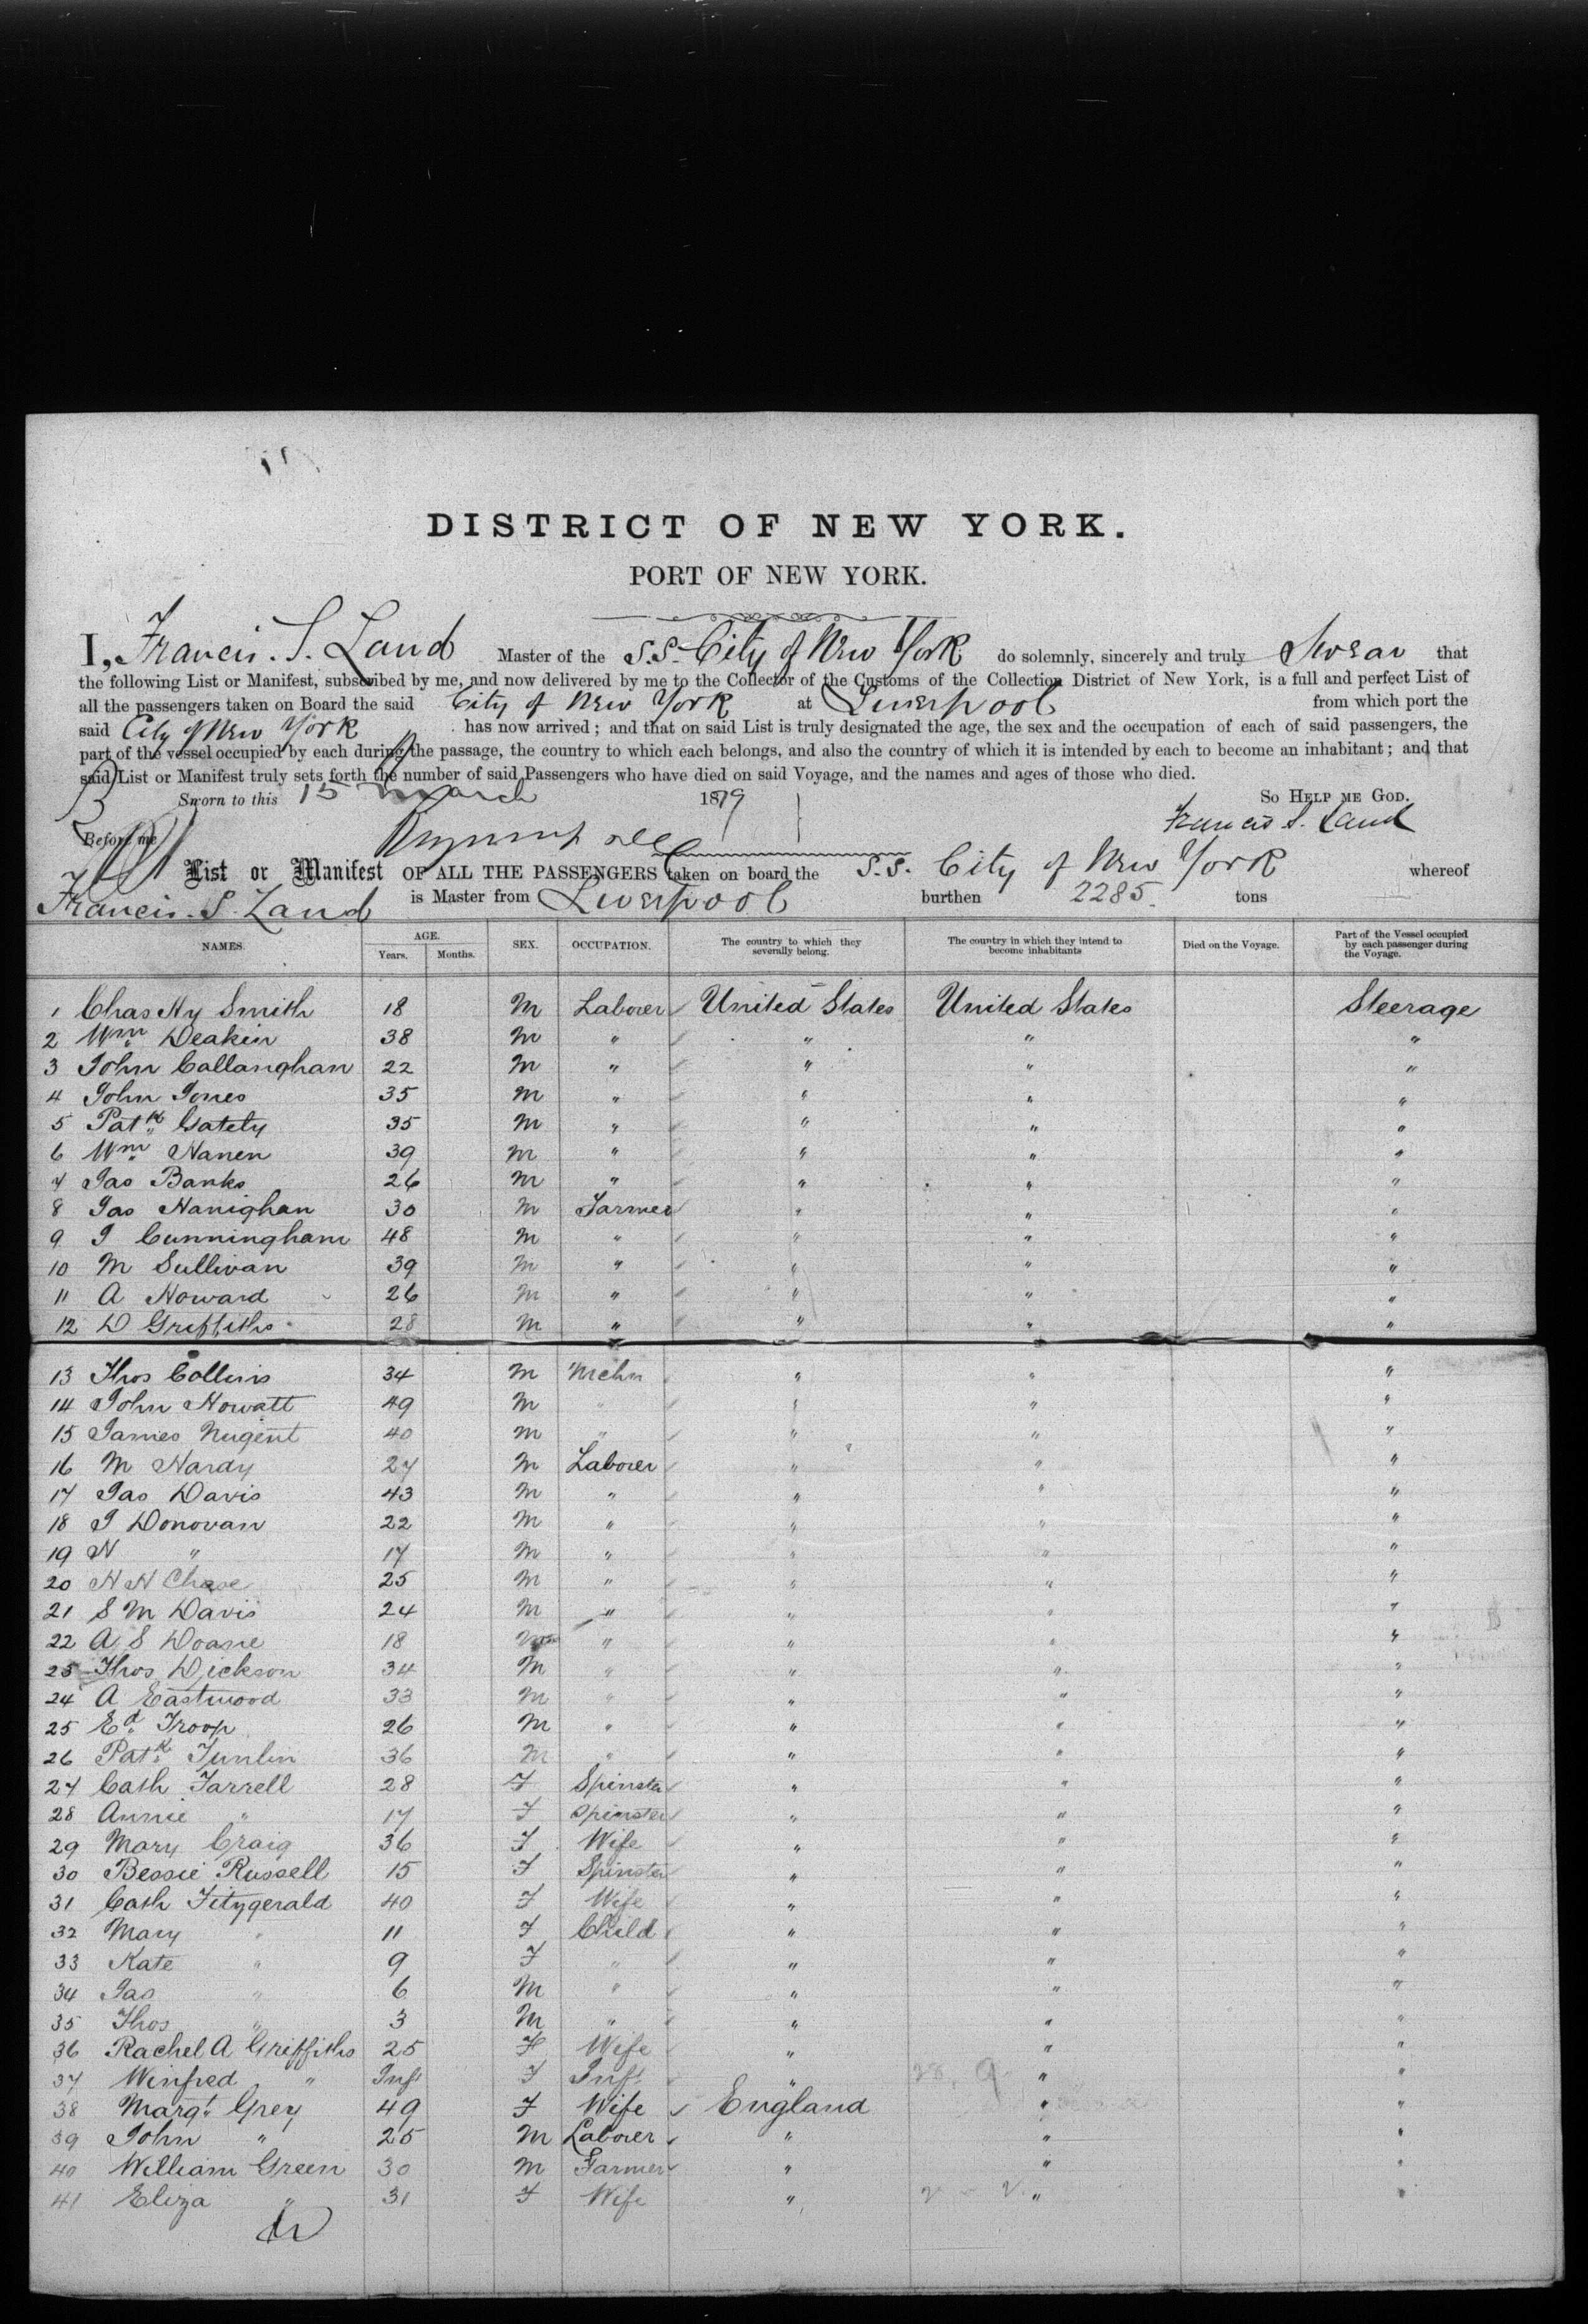 DISTRICT OF NEW YORK.
PORT OF NEW YORK.
I, Francis. S. Land Master of the S.S. City of New York do solemnly, sincerely and truly Swear that
the following List or Manifest, subscribed by me, and now delivered by me to the Collector of the Customs of the Collection District of New York, is a full and perfect List of
all the passengers taken on Board the said City of New York at Liverpool from which port the
said City of New York has now arrived; and that on said List is truly designated the age, the sex and the occupation of each of said passengers, the
part of the vessel occupied by each during the passage, the country to which each belongs, and also the country of which it is intended by each to become an inhabitant; and that
said List or Manifest truly sets forth the number of said Passengers who have died on said Voyage, and the names and ages of those who died.
Sworn to this 15 March 1879 So HELP ME GOD.
Before me Francis S. Land
List or Manifest OF ALL THE PASSENGERS taken on board the S.S. City of New York whereof
Francis. S. Land is Master from Liverpool burthen 2285. tons
NAMES. AGE. Years. Months. SEX. OCCUPATION. The country to which they severally belong. The country in which they intend to become inhabitants Died on the Voyage. Part of the Vessel occupied by each passenger during the Voyage.
1 Chas Hy Smith 18 M Laborer United States United States Steerage
2 Wm Deakin 38 M " " " "
3 John Callanghan 22 M " " " "
4 John Jones 35 M " " " "
5 Patk Gately 35 M " " " "
6 Wm Hanen 39 M " " " "
7 Jas Banks 26 M " " " "
8 Jas Hanighan 30 M Farmer " " "
9 J Cunningham 48 M " " " "
10 M Sullivan 39 M " " " "
11 A Howard 26 M " " " "
12 D Griffiths 28 M " " " "
13 Thos Collins 34 M Mchn " " "
14 John Howatt 49 M " " " "
15 James Nugent 40 M " " " "
16 M Hardy 27 M Laborer " " "
17 Jas Davis 43 M " " " "
18 J Donovan 22 M " " " "
19 H " 17 M " " " "
20 H H Chase 25 M " " " "
21 S M Davis 24 M " " " "
22 A S Doane 18 M " " " "
23 Thos Dickson 34 M " " " "
24 A Eastwood 33 M " " " "
25 Ed Troop 26 M " " " "
26 Patk Tunlin 36 M " " " "
27 Cath Farrell 28 F Spinster " " "
28 Annie " 17 F Spinster " " "
29 Mary Craig 36 F Wife " " "
30 Bessie Russell 15 F Spinster " " "
31 Cath Fitzgerald 40 F Wife " " "
32 Mary " 11 F Child " " "
33 Kate " 9 F " " " "
34 Jas " 6 M " " " "
35 Thos " 3 M " " " "
36 Rachel A Griffiths 25 F Wife " " "
37 Winfred " Inft F Inft " " "
38 Margt Grey 49 F Wife England " "
39 John " 25 M Laborer " " "
40 William Green 30 M Farmer " " "
41 Eliza " 31 F Wife " " "